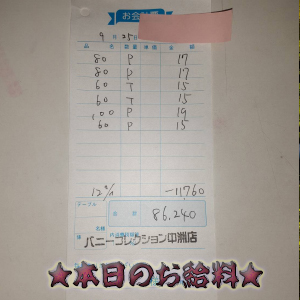 お会計票
9月25日
品名 数量 単価 金額
80 P 17
80 P 17
60 T 15
60 T 15
100 P 19
60 P 15
12% -11,760
テーブル
名様
合計 86,240
係
バニーコレクション中洲店
★本日のお給料★